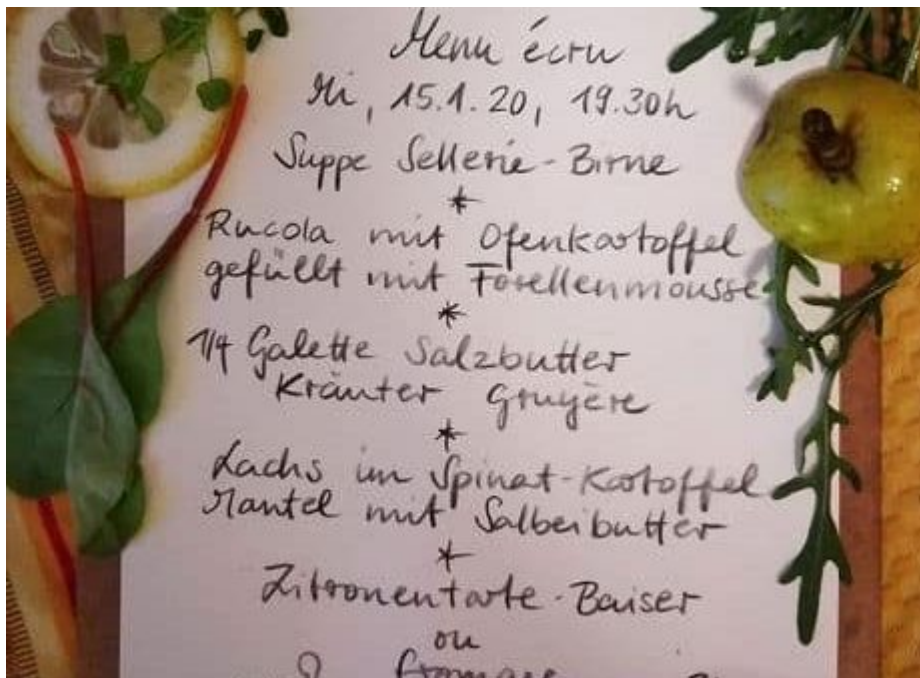 Menu écru
Mi, 15.1.20, 19.30h
Suppe Sellerie-Birne
*
Rucola mit Ofenkartoffel
gefüllt mit Forellenmousse
*
1/4 Galette Salzbutter
Kräuter Gruyère
*
Lachs im Spinat-Kartoffel
Mantel mit Salbeibutter
*
Zitronentarte-Baiser
ou
fromage